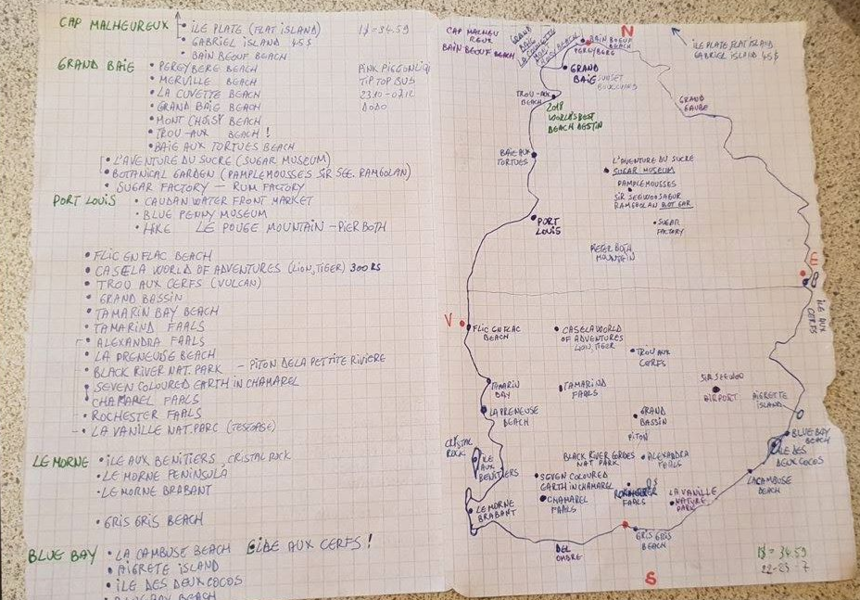 CAP MALHEUREUX
• ILE PLATE (FLAT ISLAND)
1$ = 34.59
• GABRIEL ISLAND 45$
• BAIN BEOUF BEACH
GRAND BAIE
• PEREYBERE BEACH
• MERVILLE BEACH
TIP TOP BUS
• LA CUVETTE BEACH
• GRAND BAIG BEACH
DODO
• MONT CHOISY BEACH
• TROU-AUX BEACH !
• BAIE AUX TORTUES BEACH
• L'AVENTURE DU SUCRE (SUGAR MUSEUM)
• BOTANICAL GARDEN (PAMPLEMOUSSES SIR SEE. RAMGOLAN)
• SUGAR FACTORY - RUM FACTORY
PORT LOUIS
• CAUDAN WATER FRONT MARKET
• BLUE PENNY MUSEUM
• HIKE LE POUGE MOUNTAIN - PIER BOTH
• FLIC EN FLAC BEACH
• CASELA WORLD OF ADVENTURES (LION, TIGER) 300 RS
• TROU AUX CERFS (VULCAN)
• GRAND BASSIN
• TAMARIN BAY BEACH
• TAMARIND FAALS
• ALEXANDRA FAALS
• LA PRENEUSE BEACH
• BLACK RIVER NAT. PARK - PITON DE LA PETTITE RIVIERE
• SEVEN COLOURED EARTH IN CHAMAREL
• CHAMAREL FAALS
• ROCHESTER FAALS
• LA VANILLE NAT. PARC
LE MORNE
• ILE AUX BENITIERS, CRISTAL ROCK
• LE MORNE PENINSULA
• LE MORNE BRABANT
• GRIS GRIS BEACH
BLUE BAY
• LA CAMBUSE BEACH
ILE AUX CERFS !
• AIGRETE ISLAND
• ILE DES DEUX COCOS
• BLUE BAY BEACH
CAP MALHEU
REUX
BAIN BEOUF BEACH
N
BAIN BOEUF
BEACH
PEREYBERG
ILE PLATE FLAT ISLAND
GABRIEL ISLAND 45$
GRAND
BAIG
SUNSET
BOULEVARD
TROU-AUX
BEACH
2018
WORLD'S BEST
BEACH DESTIN
GRAND
GAUBE
BAIE AUX
TORTUES
L'AVENTURE DU SUCRE
SUGAR MUSEUM
PAMPLEMOUSSES
SIR SEEWOOSAGUR
RAMGOOLAN BOT GAR
PORT
LOUIS
SUGAR
FACTORY
PETER BOTH
MOUNTAIN
E
ILE AUX
CERFS
V
FLIC EN FLAC
BEACH
CASELA WORLD
OF ADVENTURES
LION, TIGER
TROU AUX
CERFS
TAMARIN
BAY
TAMARIND
FAALS
SIR SEEWOO
AIRPORT
AIGRETTE
ISLAND
LA PRENEUSE
BEACH
GRAND
BASSIN
PITON
BLUE BAY
BEACH
ILE DES
DEUX COCOS
CRISTAL
ROCK
ILE
AUX
BENITIERS
BLACK RIVER GORGES
NAT PARK
ALEXANDRA
FAALS
SEVEN COLOURED
EARTH IN CHAMAREL
LA CAMBUSE
BEACH
CHAMAREL
FAALS
FAALS
LA VANILLE
NATURE
PARK
LE MORNE
BRABANT
GRIS GRIS
BEACH
BEL
OMBRE
S
1$ = 34.59
22-23-7